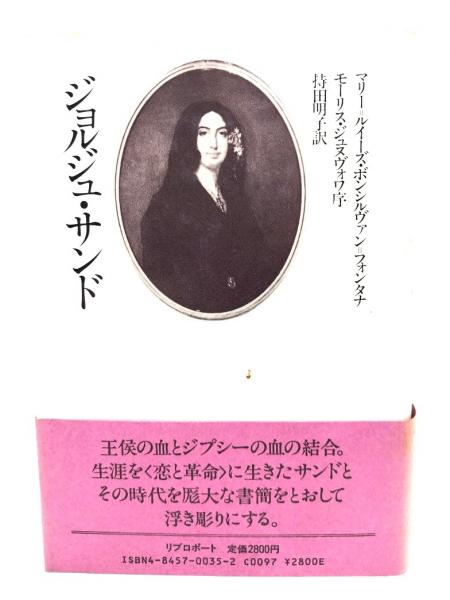 マリー=ルイーズ・ボンシルヴァン=フォンタナ
モーリス・ジュヌヴォワ序
持田明子訳
ジョルジュ・サンド
王侯の血とジプシーの血の結合。
生涯を〈恋と革命〉に生きたサンドと
その時代を厖大な書簡をとおして
浮き彫りにする。
リブロポート 定価2800円
ISBN4-8457-0035-2 C0097 ¥2800E